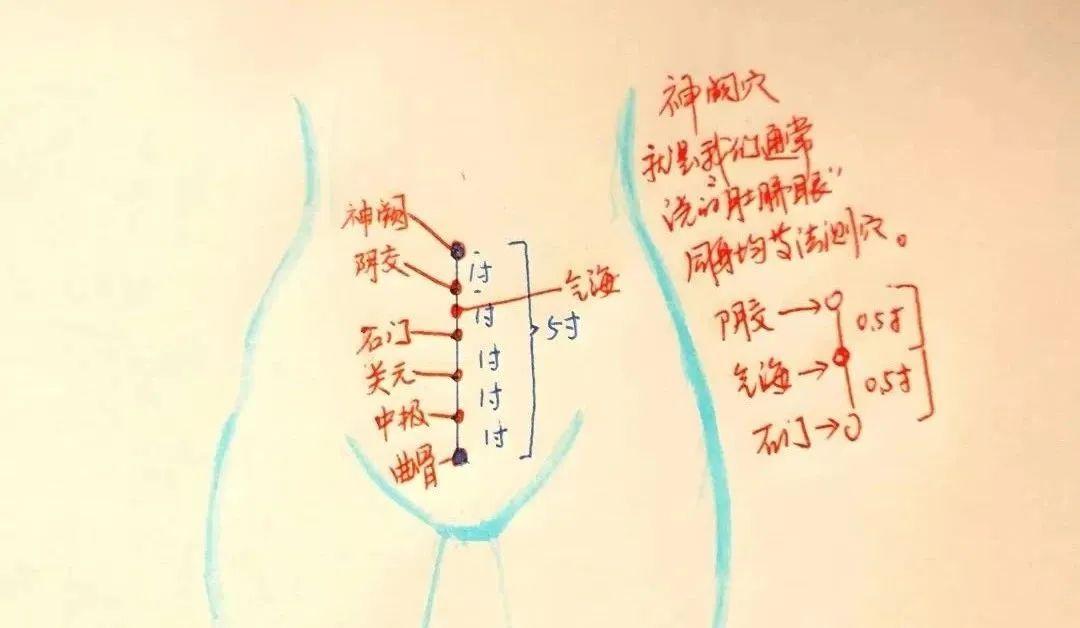 神阙
阴交
石门
关元
中极
曲骨
1寸
1寸
1寸
1寸
1寸
气海
5寸
神阙穴
就是我们通常
说的“肚脐眼”
同身均法测穴。
阴交
0.5寸
气海
0.5寸
石门